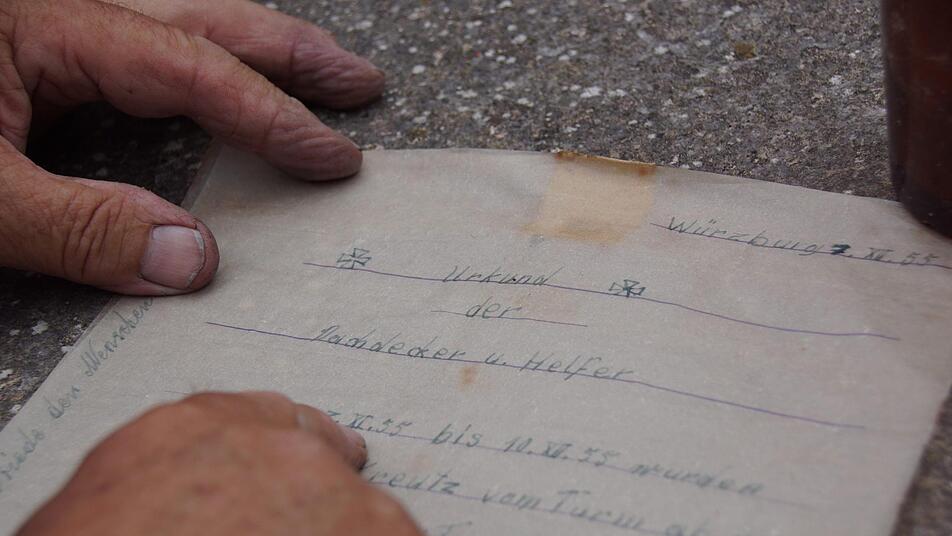 Würzburg 7. XI. 55
Urkund
der
Dachdecker u. Helfer
7. XI. 55 bis 10. XII. 55 wurden
Kreutz vom Turm
Friede den Menschen